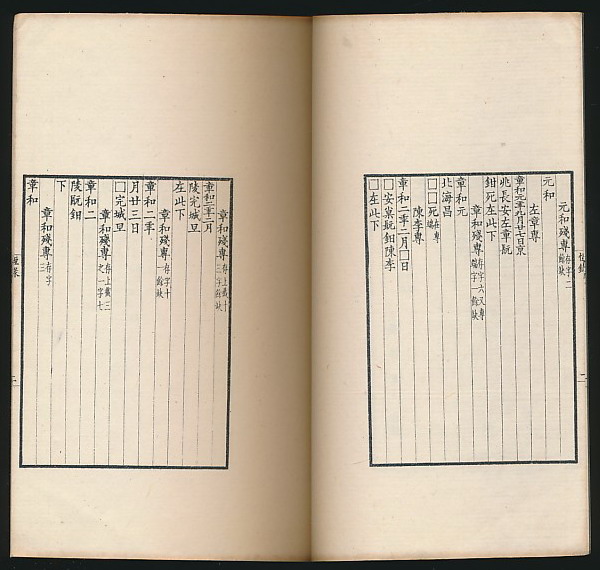 元和殘專存字二餘缺
元和
左章專
章和元年九月廿七日京
兆長安左章髡
鉗死左此下
章和殘專存字六又專端字一餘缺
章和元
北海昌
□□死在專端
陳李專
章和二年二月□日
□安眾髡鉗陳李
□左此下
二
章和殘專存上截十三字餘缺
章和二年二月
陵完城旦
左此下
章和殘專存字十餘缺
章和二年
月廿三日
□完城旦
章和殘專存上截三之一字七
章和二
陵髡鉗
下
章和殘專存字三
章和
三